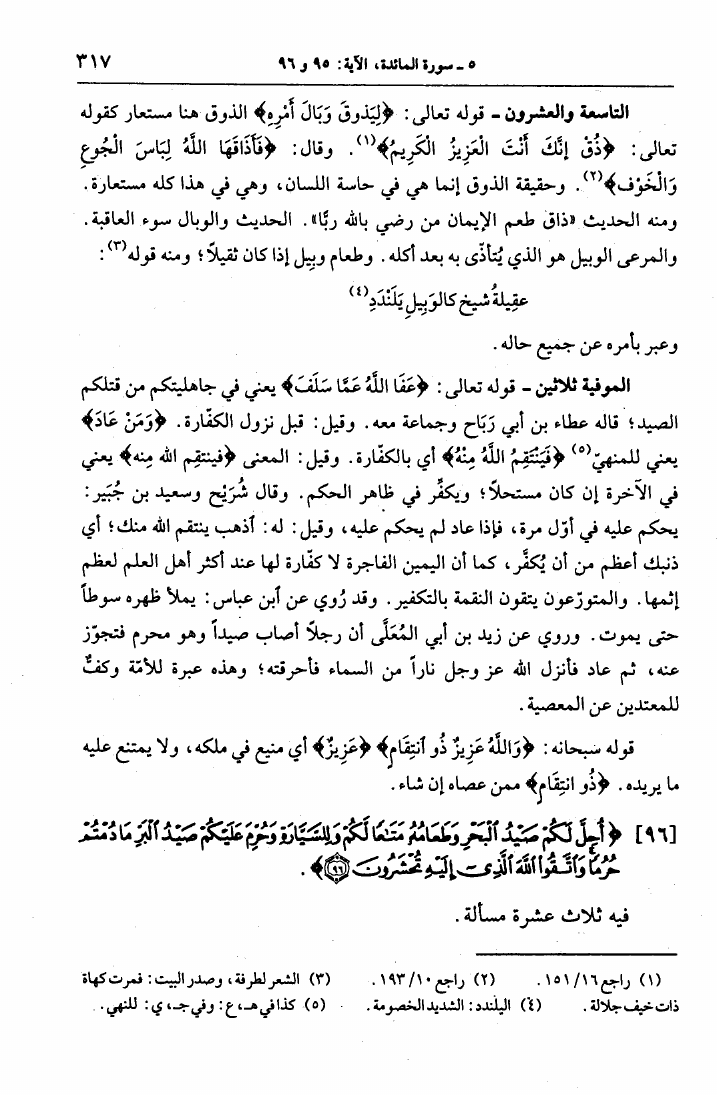 ٥ ـ سورة المائدة، الآية: ٩٥ و ٩٦
٣١٧
التاسعة والعشرون ـ قوله تعالى: ﴿لِيَذُوقَ وَبَالَ أَمْرِهِ﴾ الذوق هنا مستعار كقوله
تعالى: ﴿ذُقْ إِنَّكَ أَنْتَ الْعَزِيزُ الْكَرِيمُ﴾(١). وقال: ﴿فَأَذَاقَهَا اللَّهُ لِبَاسَ الْجُوعِ
وَالْخَوْفِ﴾(٢). وحقيقة الذوق إنما هي في حاسة اللسان، وهي في هذا كله مستعارة.
ومنه الحديث «ذاق طعم الإيمان من رضي بالله ربًّا». الحديث والوبال سوء العاقبة.
والمرعى الوبيل هو الذي يُتأذّى به بعد أكله. وطعام وبِيل إذا كان ثقيلاً؛ ومنه قوله(٣):
عقيلةُ شيخ كالوَبِيلِ يَلَنْدَدِ(٤)
وعبر بأمره عن جميع حاله.
الموفية ثلاثين ـ قوله تعالى: ﴿عَفَا اللَّهُ عَمَّا سَلَفَ﴾ يعني في جاهليتكم من قتلكم
الصيد؛ قاله عطاء بن أبي رَبَاح وجماعة معه. وقيل: قبل نزول الكفّارة. ﴿وَمَنْ عَادَ﴾
يعني للمنهيّ(٥) ﴿فَيَنْتَقِمُ اللَّهُ مِنْهُ﴾ أي بالكفّارة. وقيل: المعنى ﴿فينتقِم الله مِنه﴾ يعني
في الآخرة إن كان مستحلاً؛ ويكفِّر في ظاهر الحكم. وقال شُرَيْح وسعيد بن جُبَير:
يحكم عليه في أوّل مرة، فإذا عاد لم يحكم عليه، وقيل: له: ٱذهب ينتقم الله منك؛ أي
ذنبك أعظم من أن يُكفَّر، كما أن اليمين الفاجرة لا كفّارة لها عند أكثر أهل العلم لعظم
إثمها. والمتورّعون يتقون النقمة بالتكفير. وقد رُوي عن ٱبن عباس: يملأ ظهره سوطاً
حتى يموت. وروي عن زيد بن أبي المُعَلَّى أن رجلاً أصاب صيداً وهو محرم فتجوّز
عنه، ثم عاد فأنزل الله عز وجل ناراً من السماء فأحرقته؛ وهذه عبرة للأمّة وكفٌّ
للمعتدين عن المعصية.
قوله سبحانه: ﴿وَاللَّهُ عَزِيزٌ ذُو ٱنتِقَامٍ﴾ ﴿عَزِيزٌ﴾ أي منيع في ملكه، ولا يمتنع عليه
ما يريده. ﴿ذُو انتِقَامٍ﴾ ممن عصاه إن شاء.
[٩٦] ﴿أُحِلَّ لَكُمْ صَيْدُ ٱلْبَحْرِ وَطَعَامُهُ مَتَاعًا لَّكُمْ وَلِلسَّيَّارَةِ وَحُرِّمَ عَلَيْكُمْ صَيْدُ ٱلْبَرِّ مَا دُمْتُمْ
حُرُمًا وَٱتَّقُوا۟ ٱللَّهَ ٱلَّذِىٓ إِلَيْهِ تُحْشَرُونَ ٩٦﴾.
فيه ثلاث عشرة مسألة.
(١) راجع ١٦/ ١٥١. (٢) راجع ١٠/ ١٩٣. (٣) الشعر لطرفة، وصدر البيت: فمرت كهاة
ذات خيف جلالة. (٤) اليلندد: الشديد الخصومة. (٥) كذا في هـ، ع: وفي جـ، ي: للنهي.